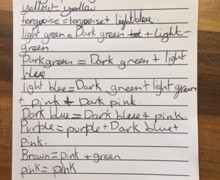 yellow = yellow
terqoise = terqoise + light blue.
light green = Dark green + Light-
green.
Dark green = Dark green + light
blue
light blue = Dark green + light green
+ Pink + Dark pink
Dark blue = Dark blue + pink.
Purple = purple + Dark blue +
Pink.
Brown = pink + green
pink = pink